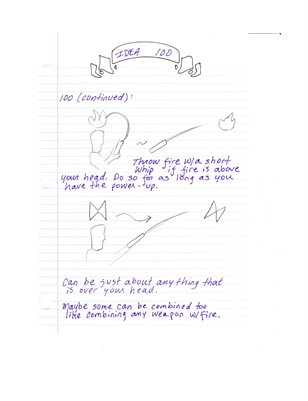 IDEA 100
100 (continued):
Throw fire w/a short
whip if fire is above
your head. Do so for as long as you
have the power-up.
Can be just about anything that
is over your head.
Maybe some can be combined too
like combining any weapon w/fire.